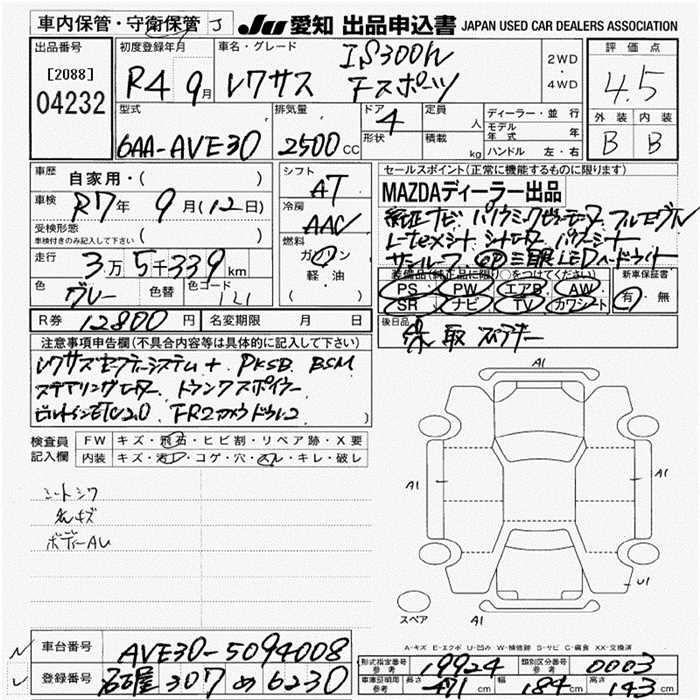 車内保管・守衛保管 J
JU 愛知 出品申込書 JAPAN USED CAR DEALERS ASSOCIATION
出品番号
[2088]
04232
初度登録年月
R4 9月
車名・グレード
IS300h
レクサス Fスポーツ
2WD
・
4WD
評価点
4.5
外装 内装
B B
型式
6AA-AVE30
排気量
2500 CC
ドア 4
形状
定員 人
積載 kg
ディーラー・並行
モデル年式 年
ハンドル 左・右
車歴 自家用・( )
車検 R7年 9月(12日)
受検形態
車検付きのみ記入して下さい ( )
走行 3万5千339km
色 グレー 色替 色コード 1L1
シフト AT
冷房 AAC
燃料 ガソリン
軽・油
( )
セールスポイント(正常に機能するものに限ります)
MAZDAディーラー出品
純正ナビ パノラミックビューモニター フルセグTV
L-texシート シートヒーター パワーシート
サンルーフ 三眼LEDヘッドライト
装備品(純正品に限り○をつけてください)
PS PW エアB AW
SR ナビ TV カワシート
新車保証書
有・無
R券 12800円 名変期限 月 日
後日品 保 取 スペアキー
注意事項申告欄(不具合内容等は具体的に記入して下さい)
レクサスセーフティーシステム+ PKSB BSM
ステアリングヒーター トランクスポイラー
ビルトインETC2.0 FRカメラドラレコ
検査員記入欄
FW キズ・飛石・ヒビ割・リペア跡・X要
内装 キズ・汚レ・コゲ・穴・スレ・キレ・破レ
シートシワ
キズ
ボディーAU
A1
A1
A1
U1
A1
スペア
A-キズ E-エクボ U-凹み W-補修跡 S-サビ C-腐食 XX-交換済
車台番号 AVE30-5094008
登録番号 名古屋 307 め 6230
形式指定番号 参考 19924 類別区分番号 参考 0003
車庫証明用 参考 長さ 471cm 幅 184cm 高さ 143cm